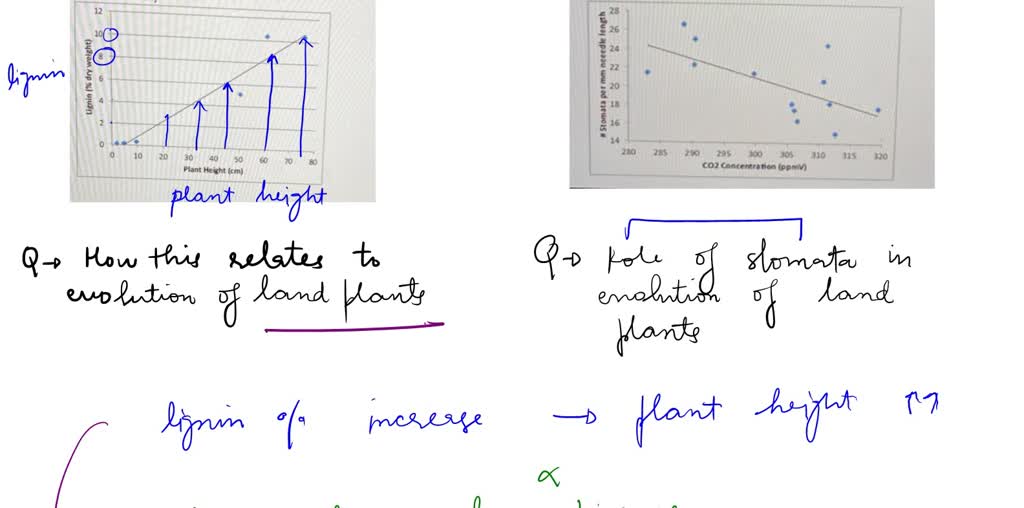 12
10
8
6
4
2
0
Lignin (% dry weight)
0 10 20 30 40 50 60 70 80
Plant Height (cm)
lignin
plant height
28
26
24
22
20
18
16
14
# Stomata per mm needle length
280 285 290 295 300 305 310 315 320
CO2 Concentration (ppmV)
Q→ How this relates to
evolution of land plants
Q→ Role of stomata in
evolution of land
plants
lignin % increase → plant height ↑↑
∝